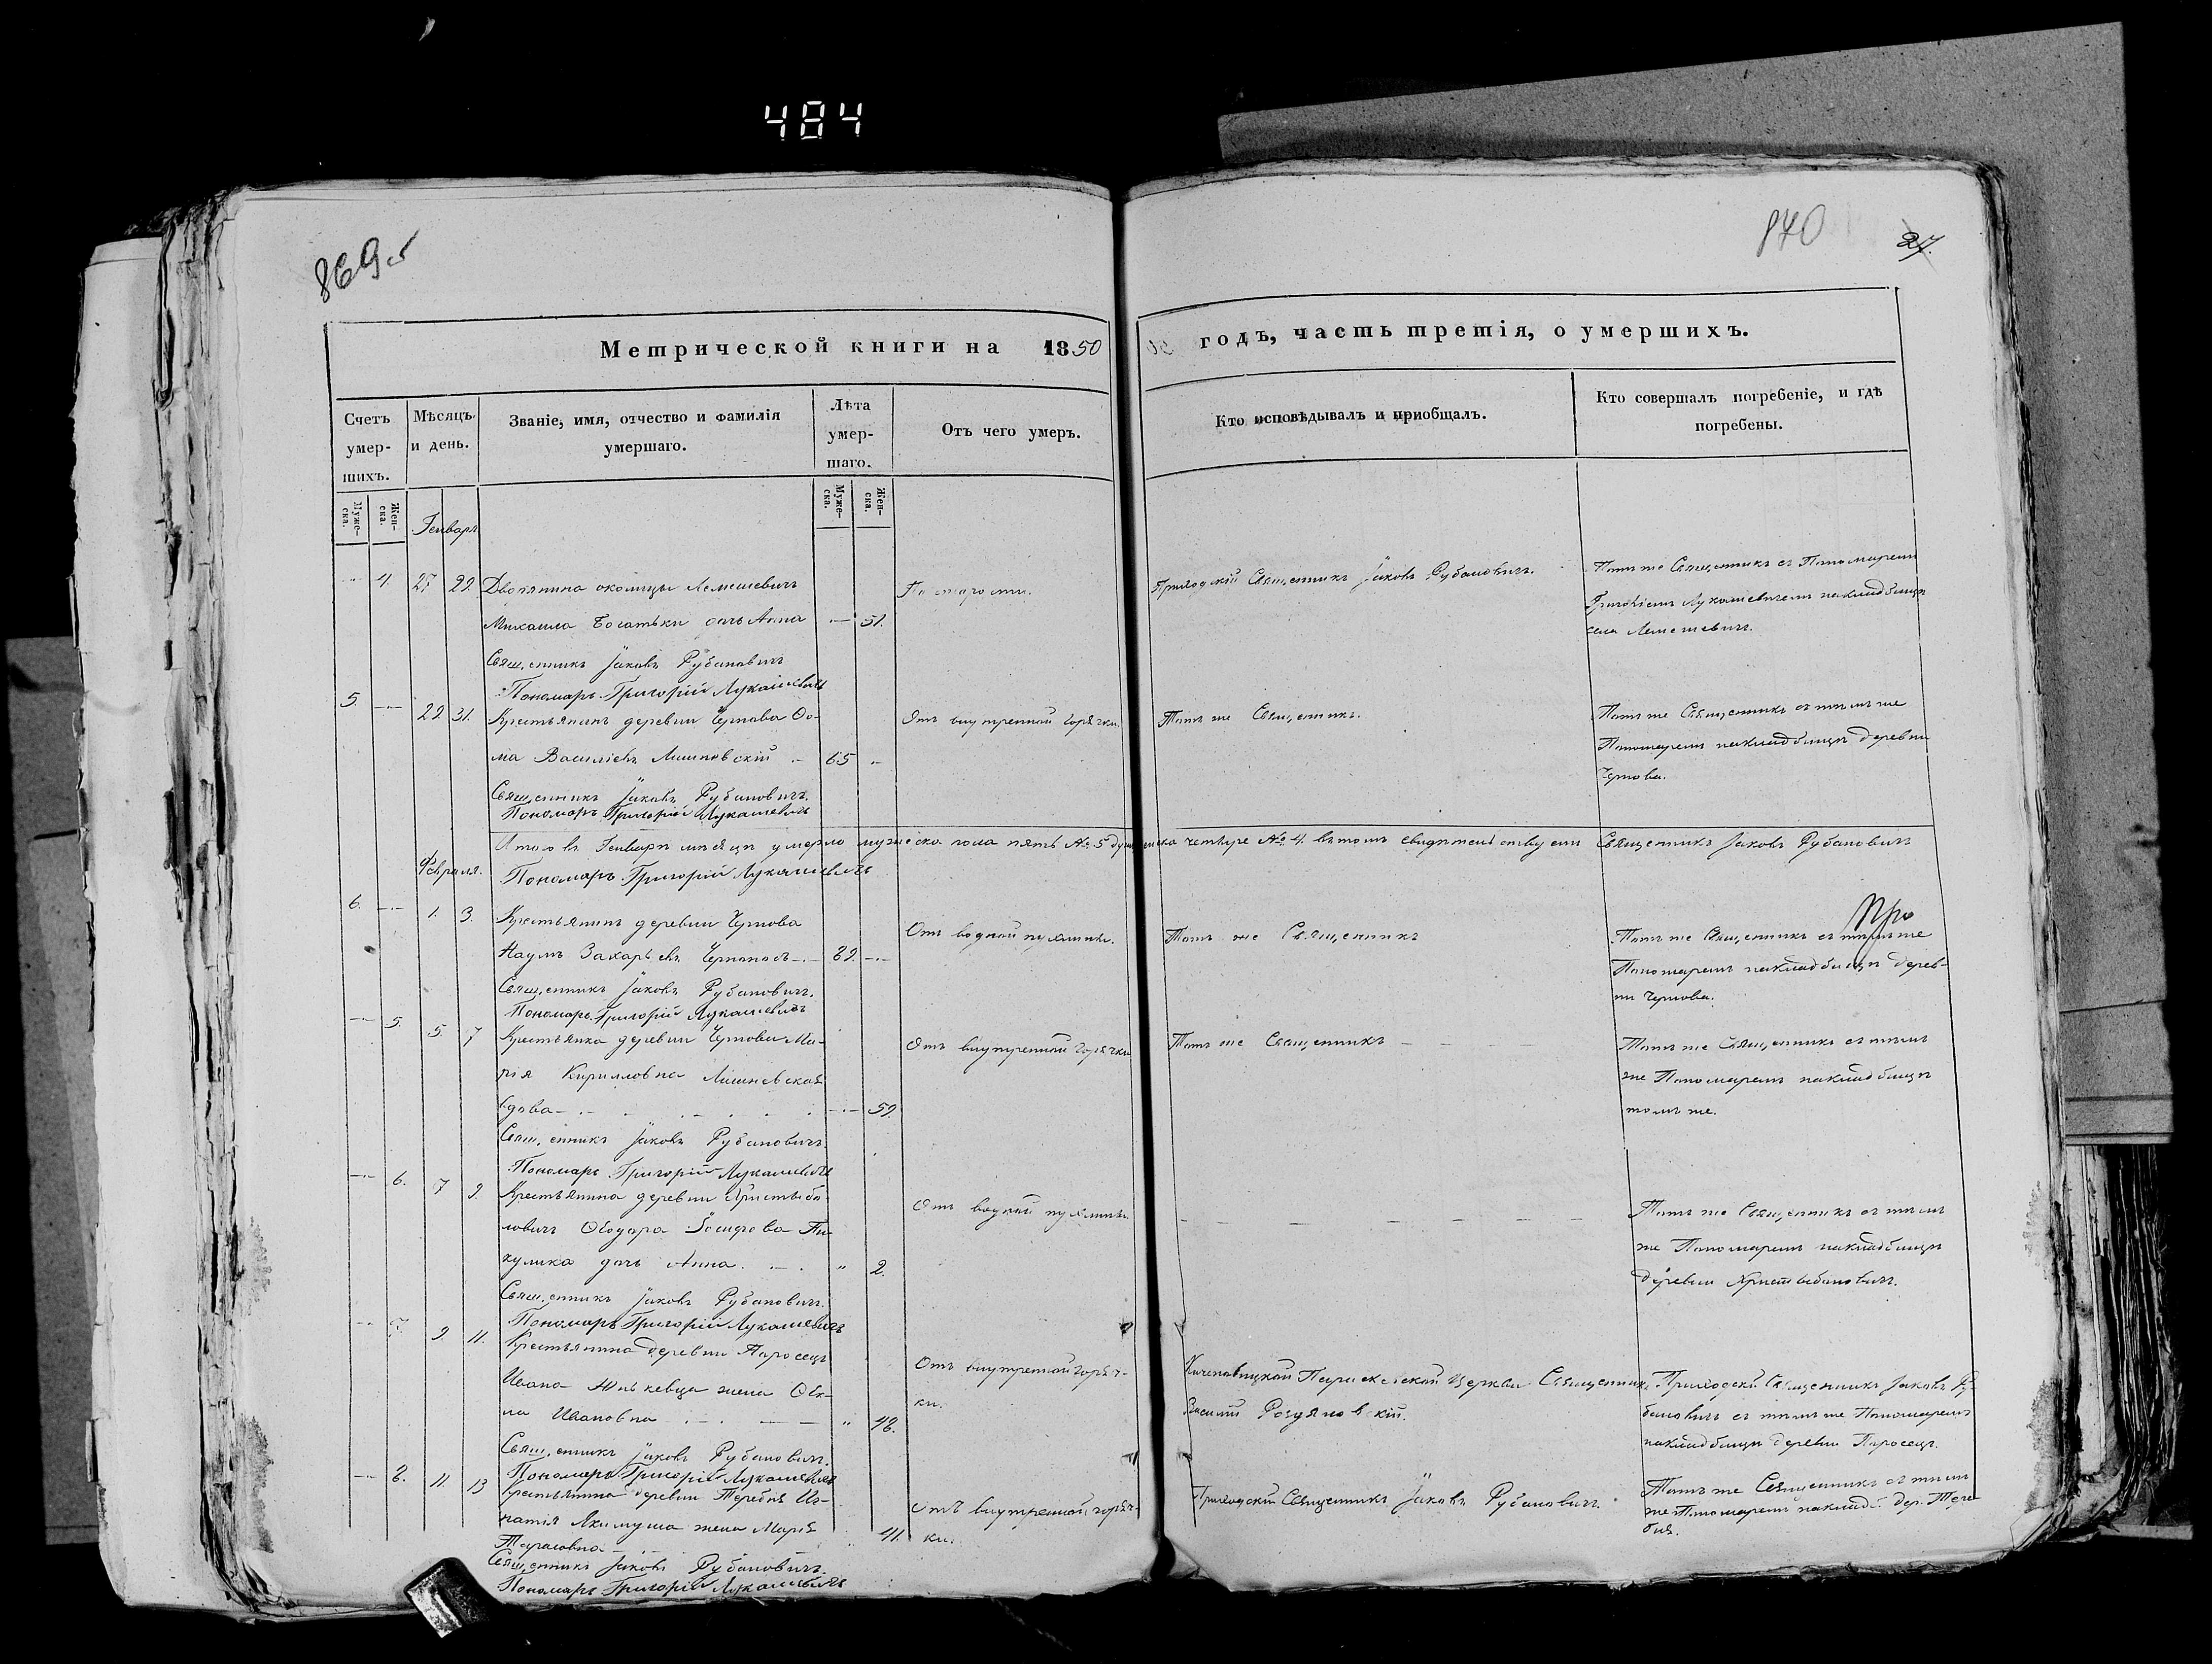 484
869
840
27.
Метрической книги на 1850
годъ, часть третія, о умершихъ.
Счетъ умер-
шихъ.
Мѣсяцъ и день.
Званіе, имя, отчество и фамилія
умершаго.
Лѣта
умер-
шаго.
Отъ чего умеръ.
Кто исповѣдывалъ и приобщалъ.
Кто совершалъ погребеніе, и гдѣ
погребены.
Муже-
ска.
Жен-
ска.
Муже-
ска.
Жен-
ска.
Генваря
4. 27 29. Дворянина околицы Лемешевичъ
Михаила дочь Анна 51.
Священникъ Іаковъ Рубановичъ
Пономарь Григорій Лукашевичъ
По старости.
Приходскій Священникъ Іаковъ Рубановичъ.
Тотъ же Священникъ съ Пономаремъ
Григоріемъ Лукашевичемъ на кладбищѣ
села Лемешевичъ.
5. 29 31. Крестьянинъ деревни Чернова Ѳо-
ма Васильевъ 65
Священникъ Іаковъ Рубановичъ.
Пономарь Григорій Лукашевичъ
Отъ внутренной горячки.
Тотъ же Священникъ.
Тотъ же Священникъ съ тѣмъ же
Пономаремъ на кладбищѣ деревни
Чернова.
Итого въ Генварѣ мѣсяцѣ умерло мужеска пола пять № 5 женска четыре № 4. въ томъ свидѣтельствуемъ Священникъ Іаковъ Рубановичъ
Пономарь Григорій Лукашевичъ
Февраля.
6. 1. 3. Крестьянинъ деревни Чернова
Наумъ Захарьевъ 69.
Священникъ Іаковъ Рубановичъ.
Пономарь Григорій Лукашевичъ
Отъ водной пухлины.
Тотъ же Священникъ
Тотъ же Священникъ съ тѣмъ же
Пономаремъ на кладбищѣ дерев-
ни Чернова.
5. 5. 7 Крестьянка деревни Чернова Ма-
рія Кирилловна
вдова 59.
Священникъ Іаковъ Рубановичъ.
Пономарь Григорій Лукашевичъ
Отъ внутренной горячки
Тотъ же Священникъ
Тотъ же Священникъ съ тѣмъ
же Пономаремъ на кладбищѣ
томъ же.
6. 7 9. Крестьянина деревни Христыбо-
ловичъ Ѳеодора Іосифова Пи-
кулика дочь Анна. 2.
Священникъ Іаковъ Рубановичъ.
Пономарь Григорій Лукашевичъ
Отъ водной пухлины
Тотъ же Священникъ съ тѣмъ
же Пономаремъ на кладбищѣ
деревни
7. 9. 11. Крестьянина деревни Паросецъ
Ивана жена
Ивановна 48.
Священникъ Іаковъ Рубановичъ.
Пономарь Григорій Лукашевичъ
Отъ внутренной горяч-
ки.
Церкви Священникъ
Василій
Приходскій Священникъ Іаковъ Ру-
бановичъ съ тѣмъ же Пономаремъ
на кладбищѣ деревни Паросецъ.
8. 11. 13 Крестьянина деревни Теребня Иг-
натія жена Марія
Тарасовна 41.
Священникъ Іаковъ Рубановичъ.
Пономарь Григорій Лукашевичъ
Отъ внутренной горяч-
ки.
Приходскій Священникъ Іаковъ Рубановичъ.
Тотъ же Священникъ съ тѣмъ
же Пономаремъ на кладб. дер. Тере-